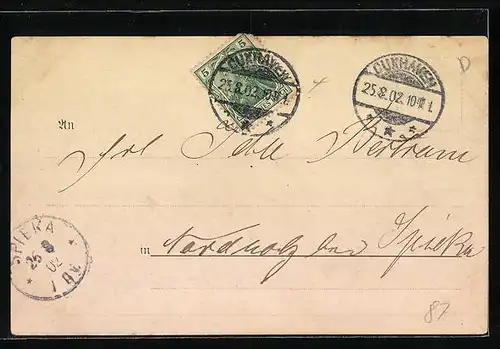 5 5
CUXHAVEN
25.8.02.10
CUXHAVEN
25.8.02.10
D
An
Frl Bertram
SPIEKA
25 8 02
in Nordholz bei Spieka
87